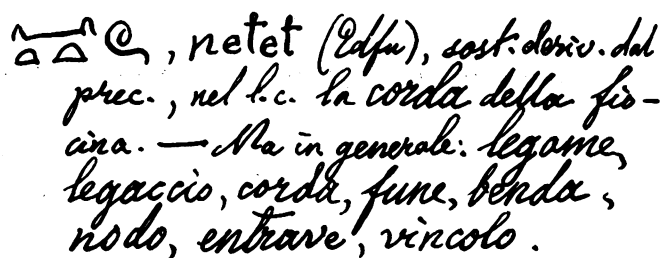 , netet (Edfu), sost. deriv. dal
prec., nel l.c. la corda della fio-
cina. — Ma in generale: legame,
legaccio, corda, fune, benda,
nodo, entrave, vincolo.